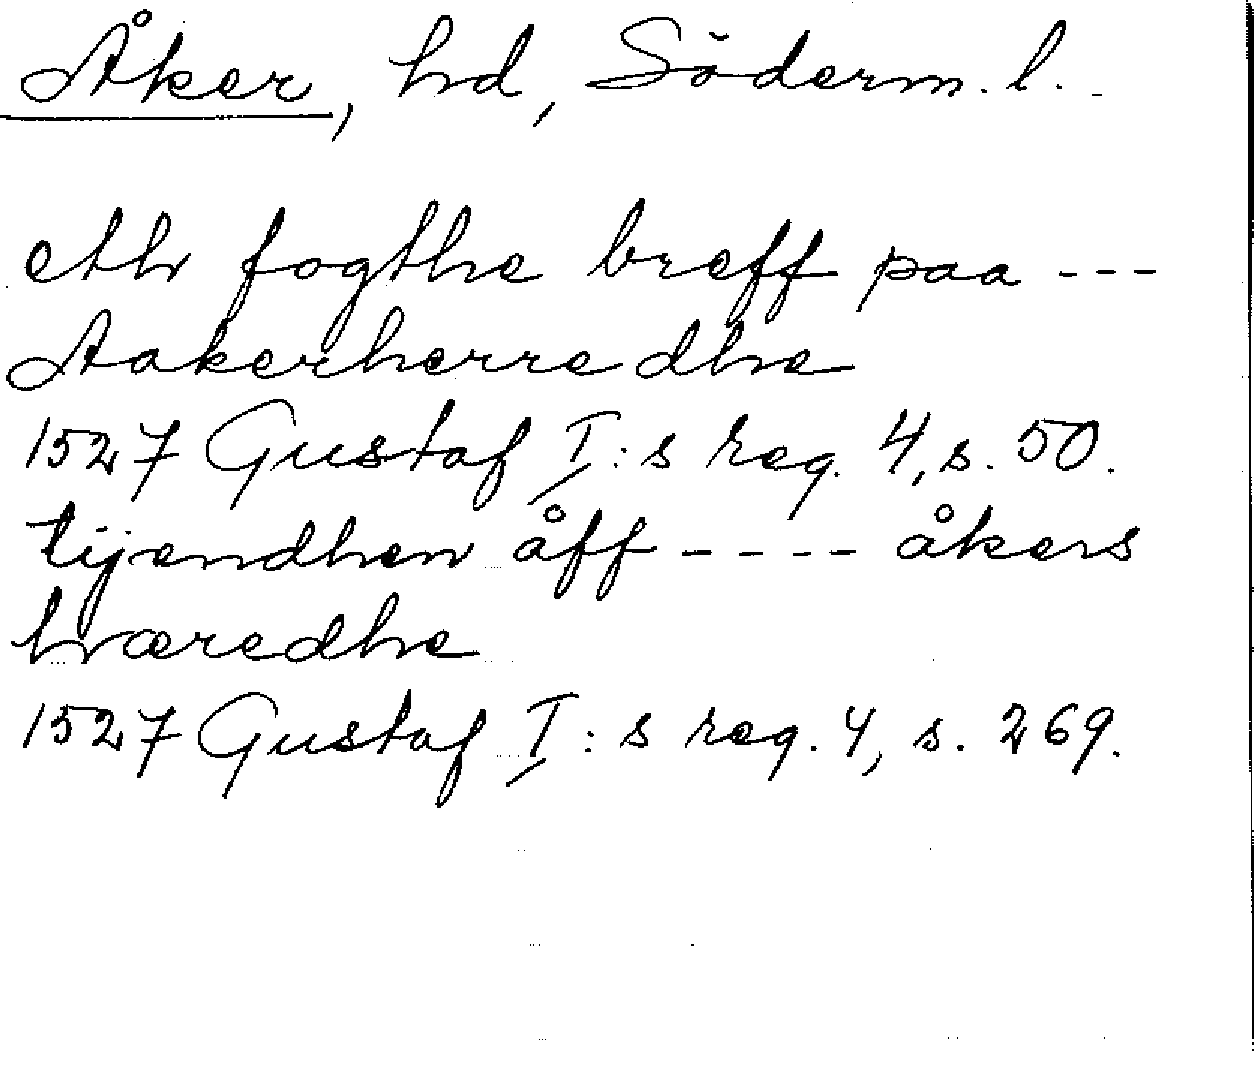 Åker, hd, Söderm. l.
eth fogthe breff paa ---
Aakerherredhe
1527 Gustaf I:s reg. 4, s. 50.
tijendhen åff ---- åkers
hæredhe
1527 Gustaf I:s reg. 4, s. 269.